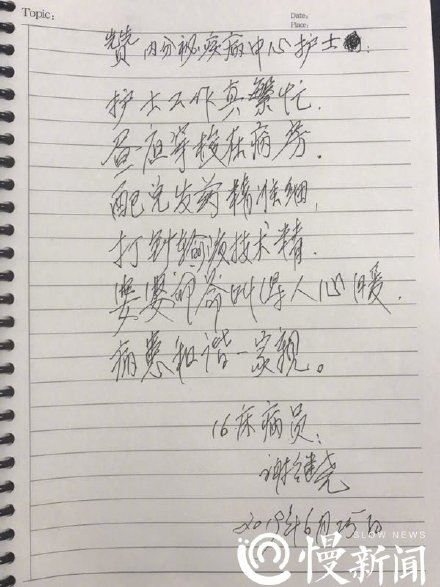 Topic:
Date:
Place:
赞内分泌疾病中心护士:
护士工作真繁忙.
在病旁.
配完发药精准细,
打针输液技术精.
叫得人心暖.
病患和谐一家亲。
16床病员:
谢继尧
2019年6月25日
SLOW NEWS
慢新闻